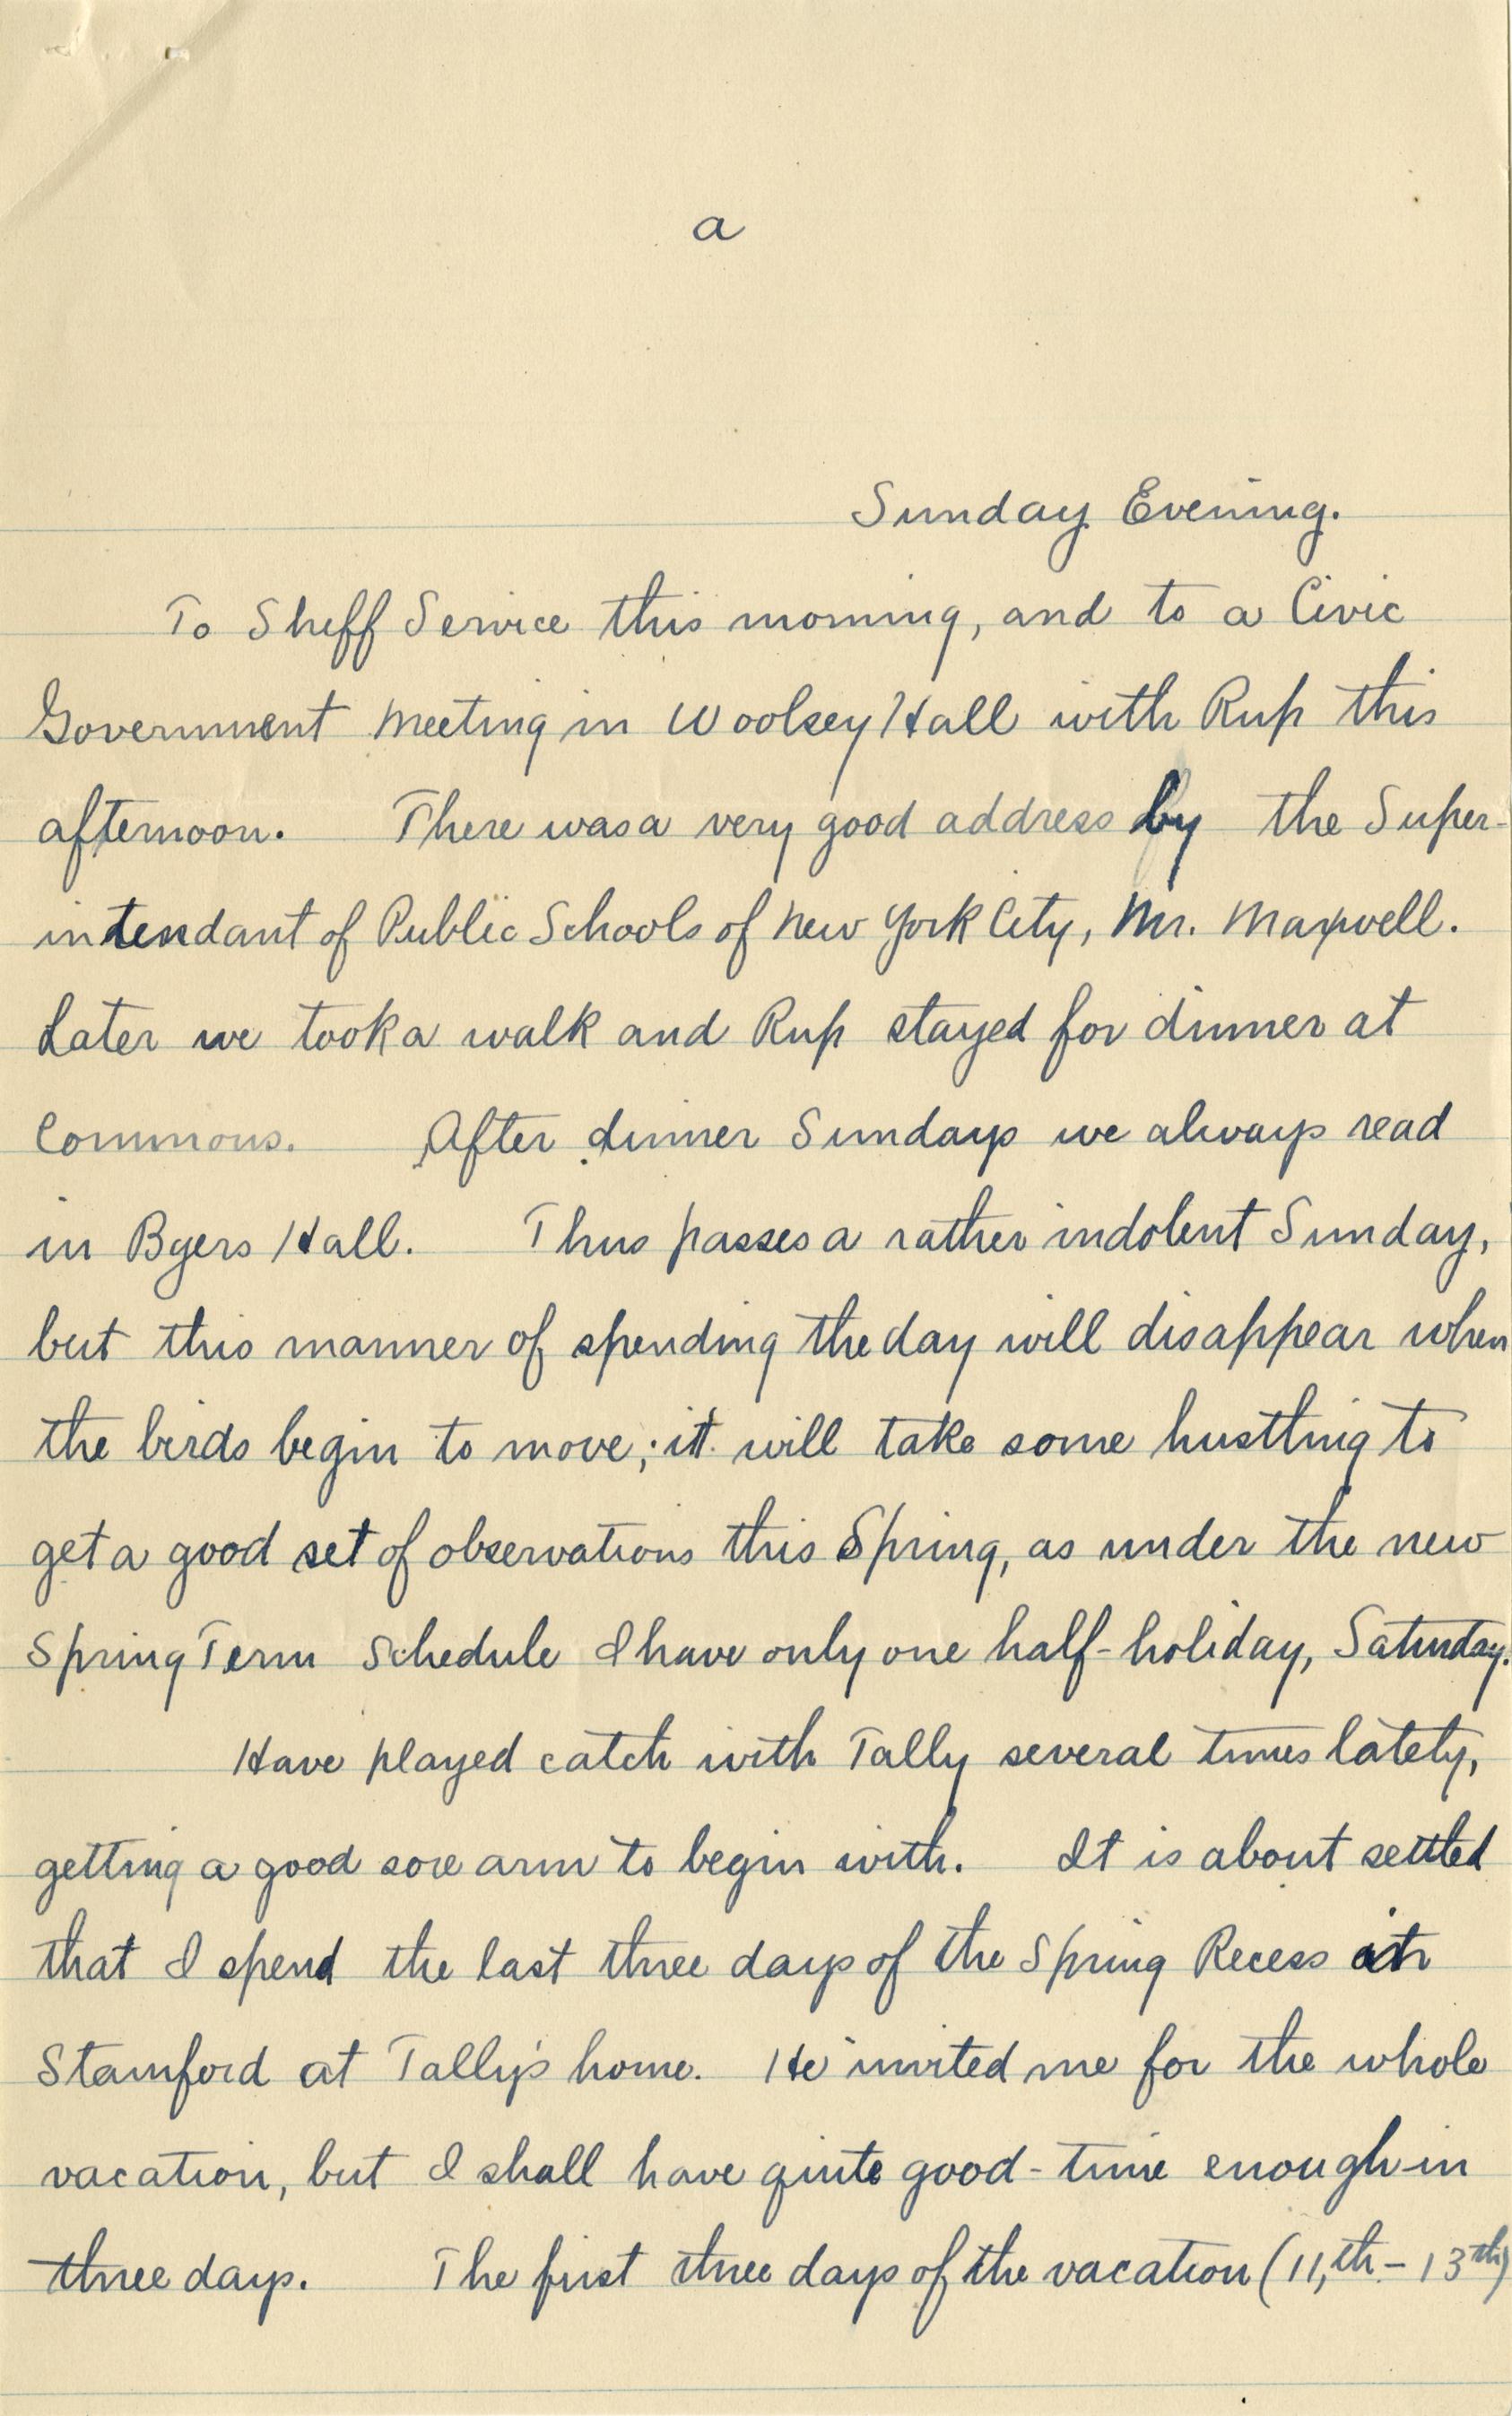 a
Sunday Evening.
To Sheff Service this morning, and to a Civic
Government Meeting in Woolsey Hall with Rup this
afternoon. There was a very good address by the Super-
intendant of Public Schools of New York City, Mr. Maxwell.
Later we took a walk and Rup stayed for dinner at
Commons. After dinner Sundays we always read
in Byers Hall. Thus passes a rather indolent Sunday,
but this manner of spending the day will disappear when
the birds begin to move; it will take some hustling to
get a good set of observations this Spring, as under the new
Spring Term Schedule I have only one half-holiday, Saturday.
Have played catch with Tally several times lately,
getting a good sore arm to begin with. It is about settled
that I spend the last three days of the Spring Recess in
Stamford at Tally's home. He invited me for the whole
vacation, but I shall have quite good-time enough in
three days. The first three days of the vacation (11,th - 13th)